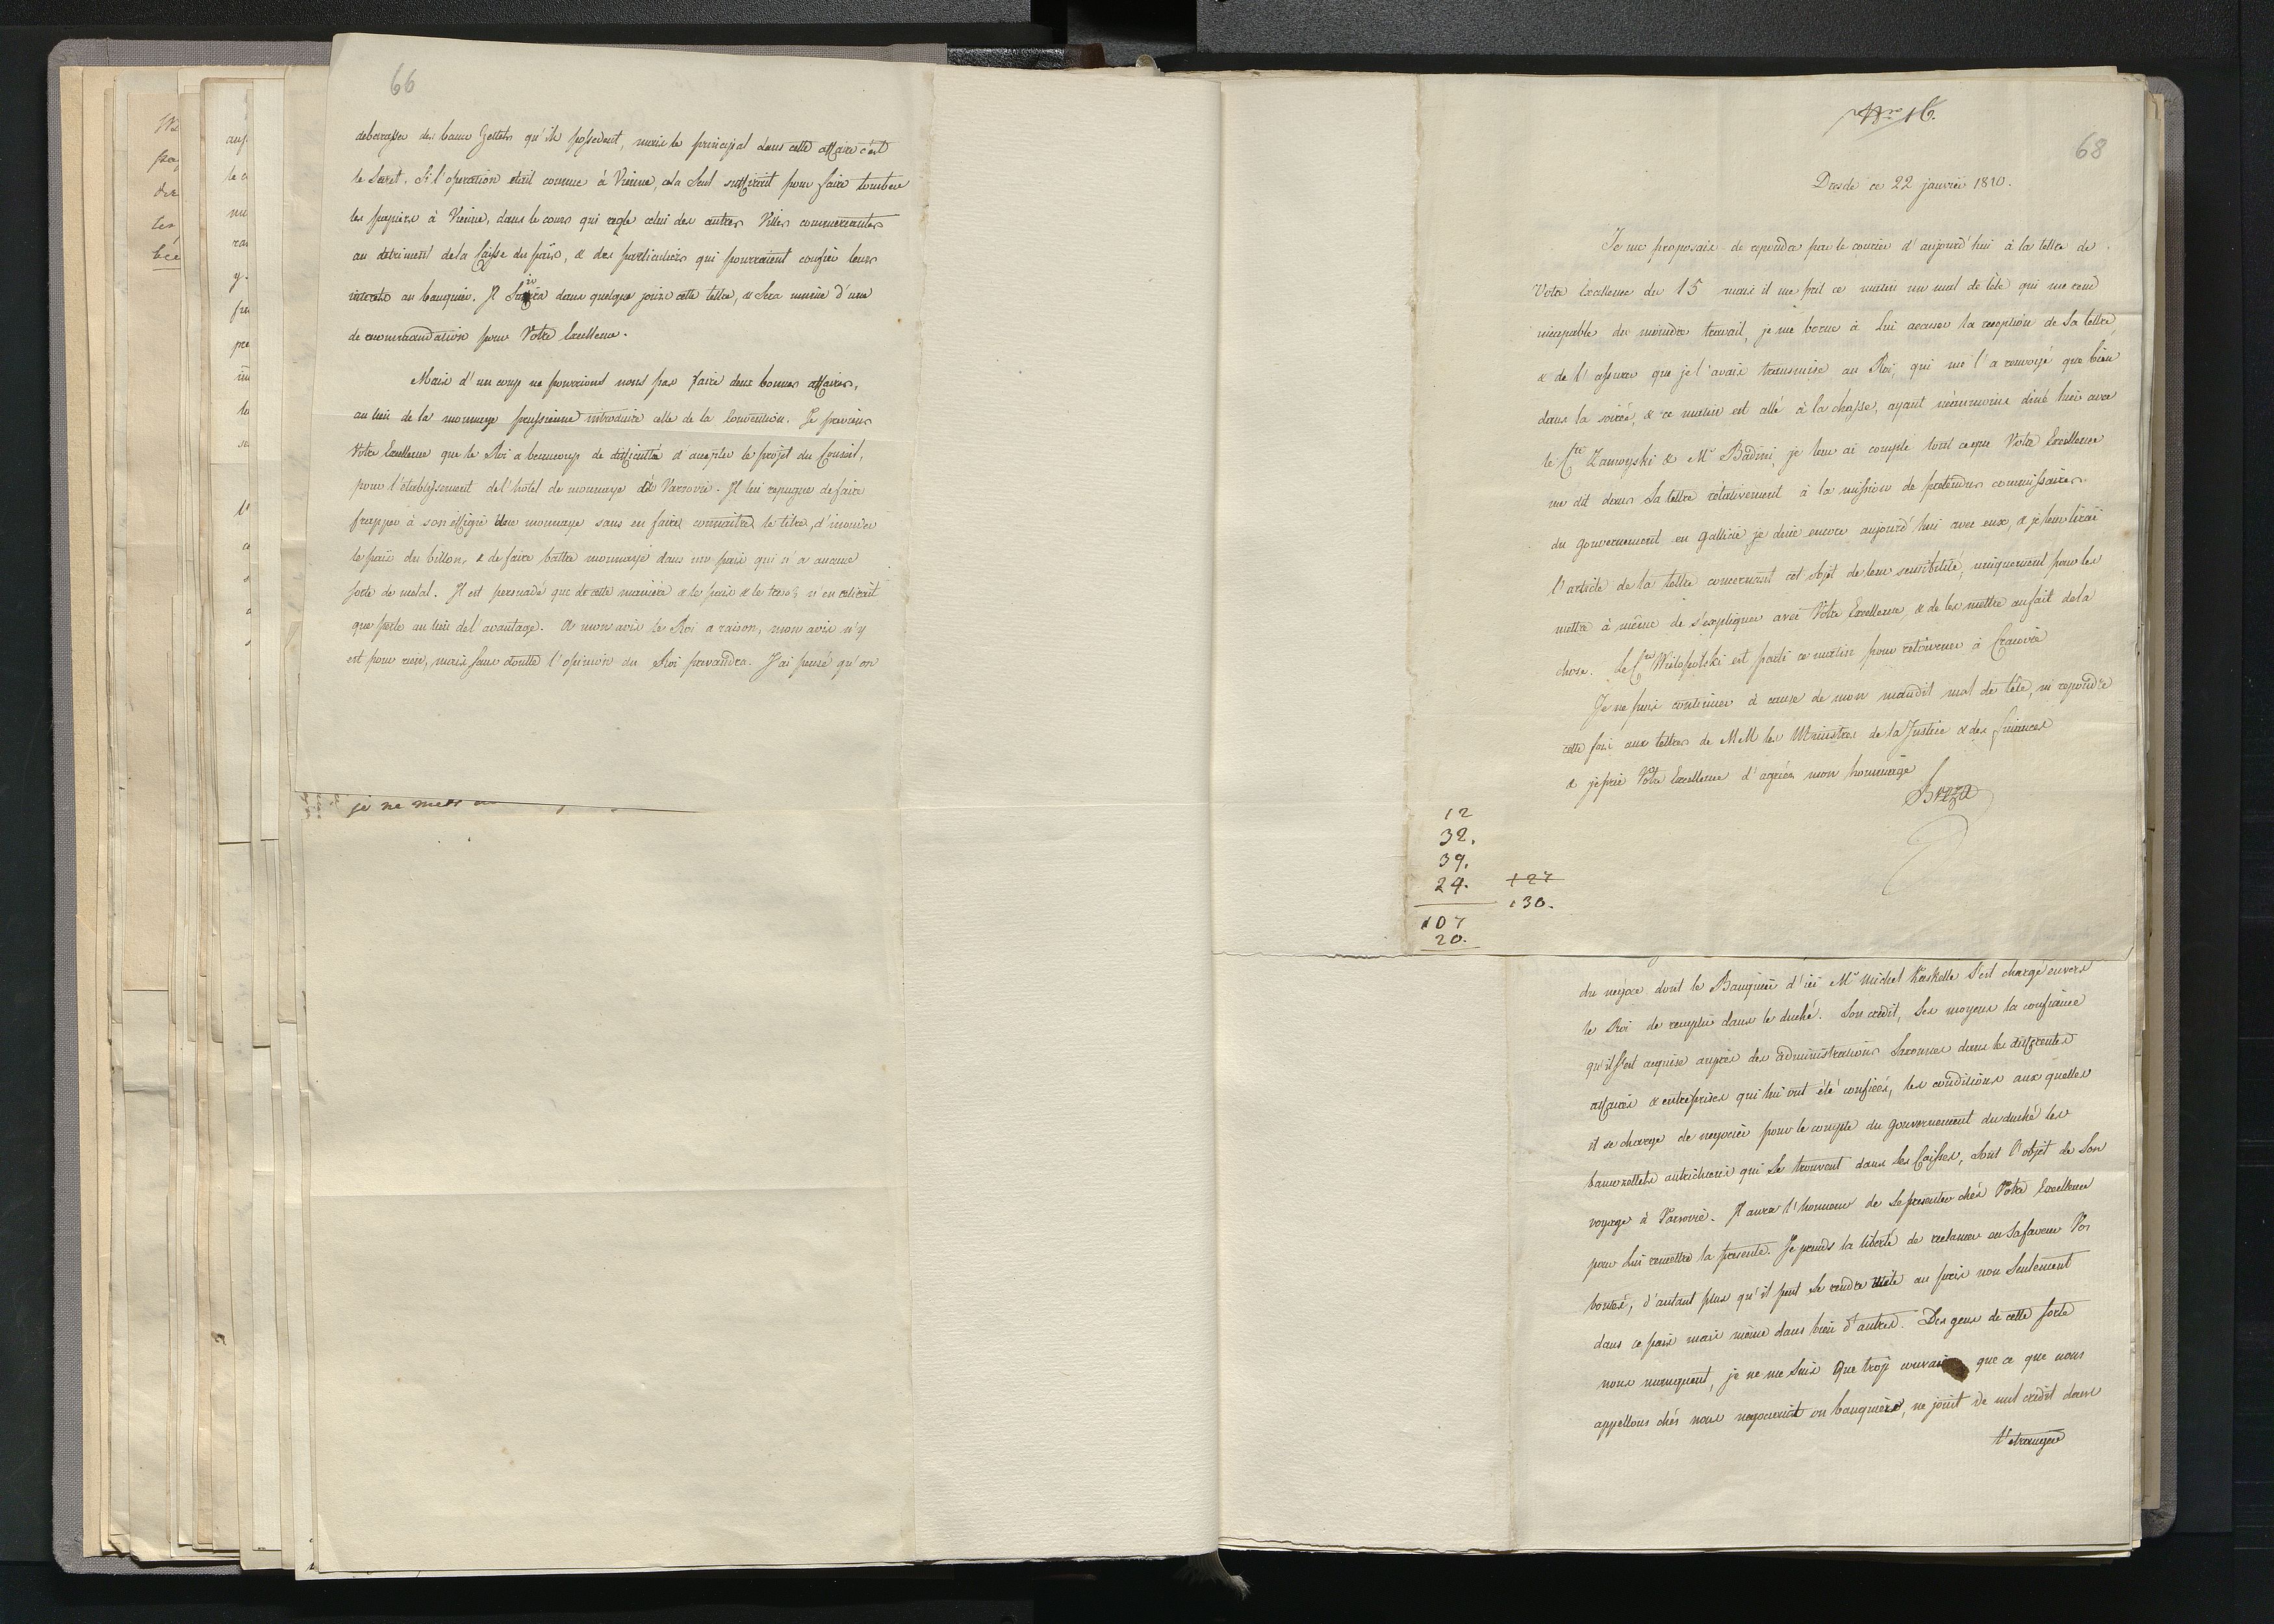 66
debarasser des banco Zettels qu'ils possedent, mais le principal dans cette affaire c'est
le Secret. Si l'operation etait connue à Vienne, cela Seul suffirait pour faire tomber
les papiers à Vienne, dans le cours qui regle celui des autres Villes commercantes
au detriment de la Caisse du païs, & des particuliers qui pourraient confier leurs
interets au banquier. Il dans quelques jours cette lettre, & Sera munie d'une
de recommandation pour Votre Excellence.
Mais d'un coup ne pourrions nous pas faire deux bonnes affaires,
au lieu de la monnaye prussienne introduire celle de la Convention. Je previens
Votre Excellence que le Roi a beaucoup de difficulté d'accepter le projet du Conseil,
pour l'établissement de l'hotel de monnaye à Varsovie. Il lui repugne de faire
frapper à son effigie une monnaye sans en faire connaitre le titre, d'inonder
le païs du billon, & de faire battre monnaye dans un païs qui n'a aucune
sorte de metal. Il est persuadé que de cette manière & le païs & le tresor n'en retirait
que perte au lieu de l'avantage. A mon avis le Roi a raison, mon avis n'y
est pour rien, mais sans doutte l'opinion du Roi prevaudra. J'ai pensé qu'on
je ne mets
Nro 16.
68
Dresde ce 22 janvier 1810.
Je me proposais de repondre par le courier d'aujourd'hui à la lettre de
Votre Excellence du 15 mais il me prit ce matin un mal de tête qui me rend
incapable du moindre travail, je me borne à Lui accuser la reception de Sa lettre,
& de l'assurer que je l'avais transmise au Roi, qui me l'a renvoyé que bien
dans la soirée, & ce matin est allé à la chasse, ayant néanmoins diné hier avec
le Cte Zamoyski & Mr Badeni, je leur ai compte tout ce que Votre Excellence
me dit dans Sa lettre rélativement à la mission de pretendus commissaires
du gouvernement en Gallicie je dine encore aujourd'hui avec eux, & je leur lirai
l'article de la lettre concernant cet objet de leur sensibilité, uniquement pour les
mettre à même de s'expliquer avec Votre Excellence, & de les mettre au fait de la
chose. Le Cte Wielopolski est parti ce matin pour retourner à Cracovie
Je ne puis continuer à cause de mon maudit mal de tête, ni repondre
cette fois aux lettres de MM les Ministres de la Justice & des finances
& je prie Votre Excellence d'agréer mon hommage
Breza
12
32.
39.
24. 127
130.
107
20.
du negoce dont le Banquier d'ici Mr Michel Kaskelle s'est chargé envers
le Roi de remplir dans le duché. Son credit, Ses moyens la confiance
qu'il s'est acquise auprès des administrations Saxonnes dans les differentes
affaires & entreprises qui lui ont été confiées, les conditions aux quelles
il se charge de negocier pour le compte du gouvernement du duché les
bancozettels autrichiens qui Se trouvent dans Ses Caisses, Sont l'objet de Son
voyage à Varsovie. Il aura l'honneur de Se presenter chés Votre Excellence
pour Lui remettre la presente. Je prends la liberté de reclamer en Sa faveur Vos
bontés, d'autant plus qu'il peut se rendre utile au païs non Seulement
dans ce païs mais même dans bien d'autres. Des gens de cette sorte
nous manquent, je ne me Suis que trop que ce que nous
appellons chés nous negociant ou banquier, ne jouit de nul credit dans
l'etranger